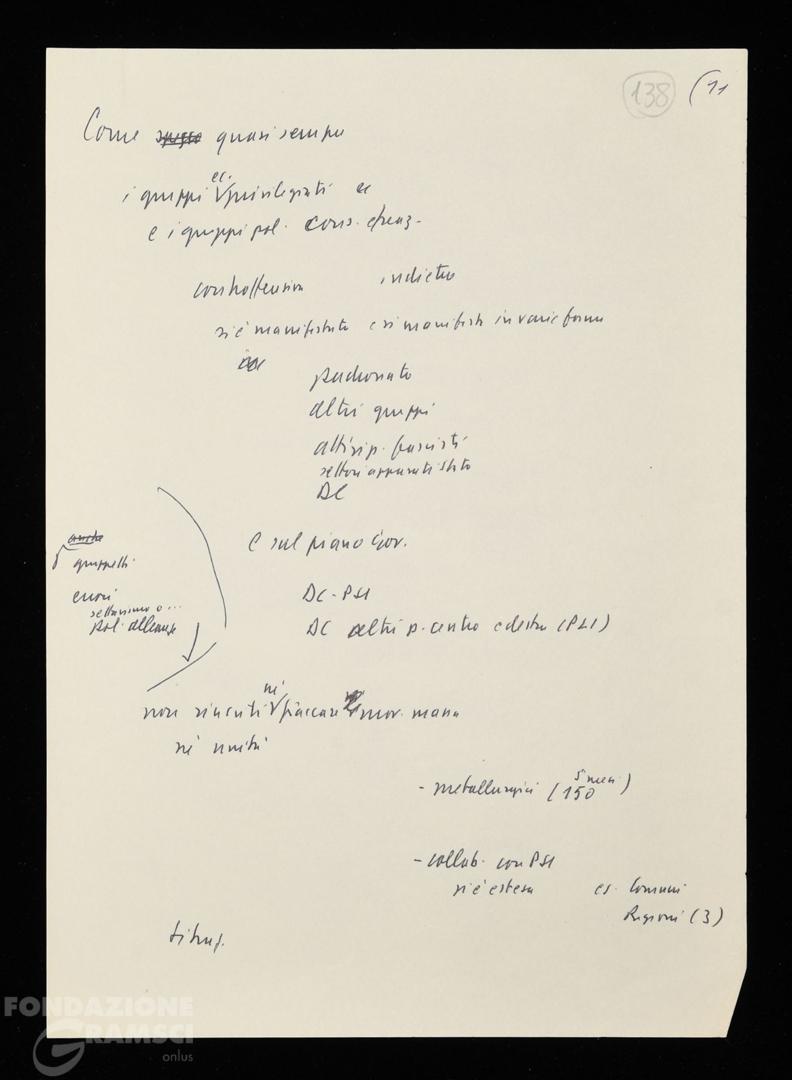 138 (11
Come spesso quasi sempre
i gruppi ec. privilegiati
e i gruppi pol. cons. e reaz.
controffensiva indietro
si è manifestata e si manifesta in varie forme
padronato
altri gruppi
fascisti
settori apparati stato
DC
e sul piano Gov.
anche
gruppetti
errori
settarismo o ...
pol. alleanze
DC - PSI
DC altri p. centro e destra (PLI)
non riusciti né fiaccare mov. massa
né unità
- metallurgici (150 5 mesi)
- collab. con PSI
si è estesa es. Comuni
Regioni (3)
FONDAZIONE
GRAMSCI
onlus